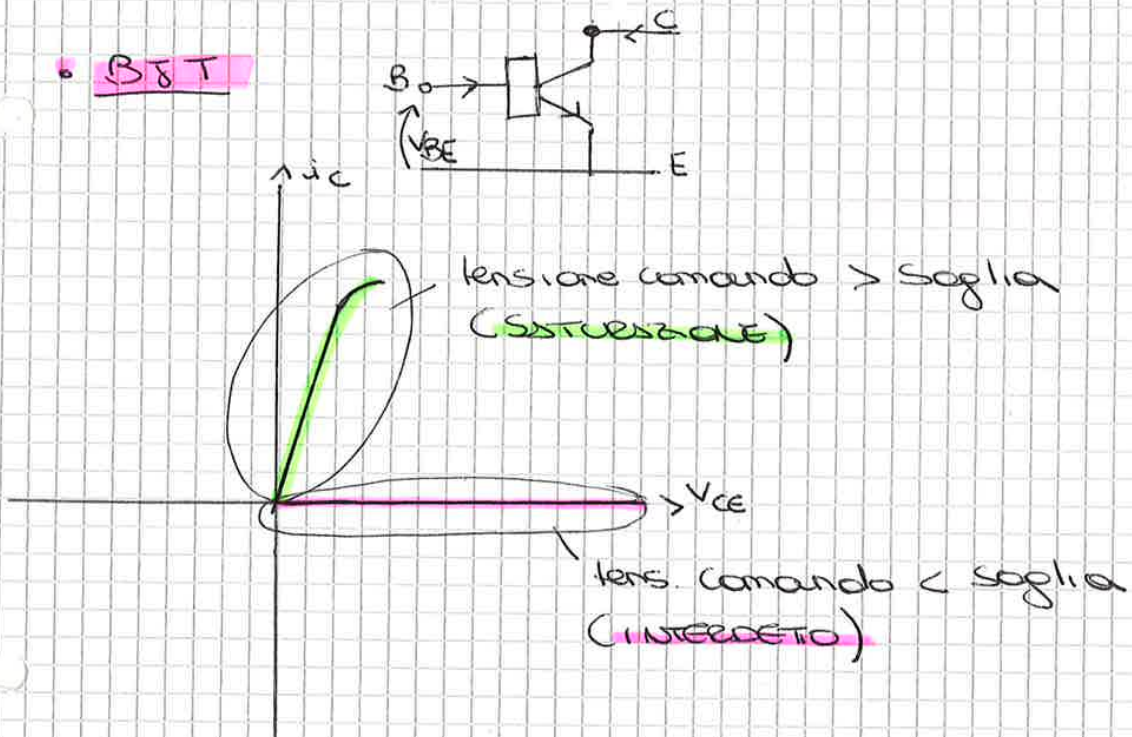 • BJT
C
B
VBE
E
iC
tensione comando > Soglia
(SATURAZIONE)
VCE
tens. comando < soglia
(INTERDETTO)